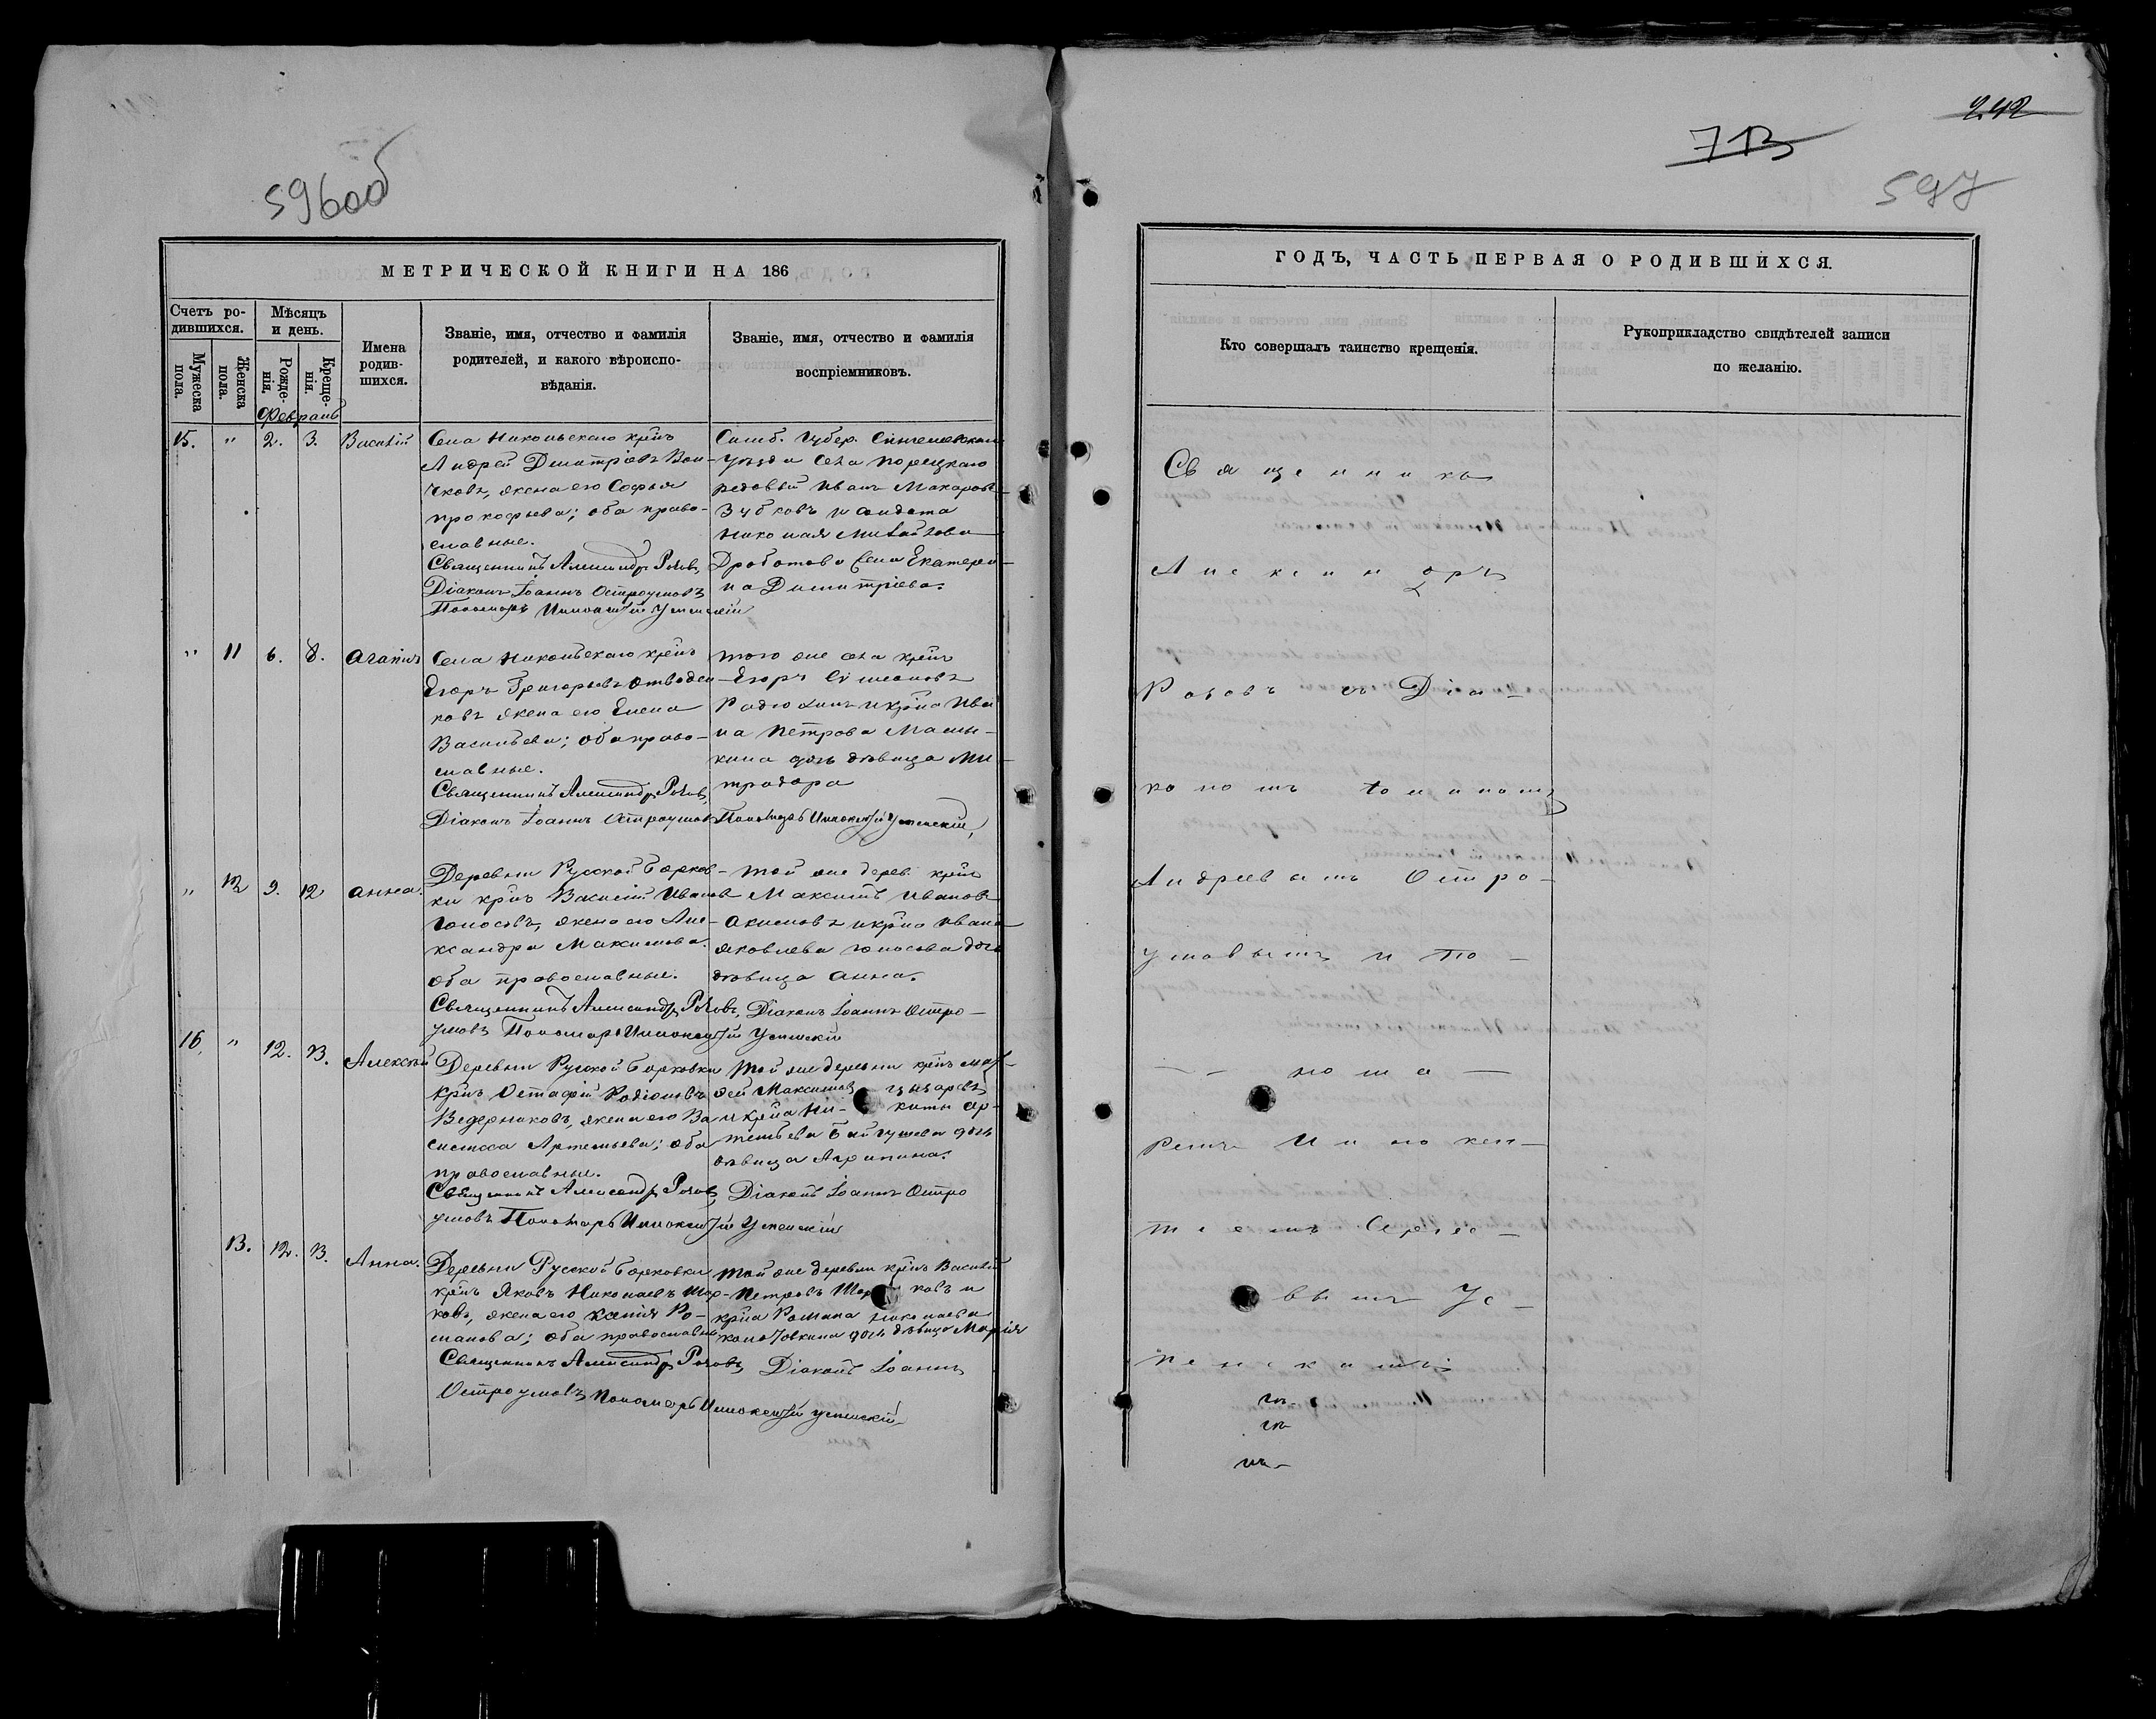 596об
МЕТРИЧЕСКОЙ КНИГИ НА 186
Счетъ ро-
дившихся.
Мѣсяцъ
и день.
Мужеска
пола.
Женска
пола.
Рожде-
нія.
Креще-
нія.
Имена
родив-
шихся.
Званіе, имя, отчество и фамилія
родителей, и какого вѣроиспо-
вѣданія.
Званіе, имя, отчество и фамилія
воспріемниковъ.
Февраль
15. " 2. 3. Василій
Села Никольскаго крнъ
Андрей Димитріевъ
жена его Софья
Прокофьева; оба право-
славные.
Священникъ Александръ Роковъ
Діаконъ Іоаннъ Остроумовъ
Пономарь Иннокентій Успенскій
Симб. Губер.
Уѣзда Села Порецкаго
рядовый Иванъ Макаровъ
Зубковъ и солдата
Николая Михайлова
Дроботова Екатери-
на Димитріева.
" 11 6. 8.
Села Никольскаго крнъ
Егоръ Григорьевъ
жена его Елена
Васильева; оба право-
славные.
Священникъ Александръ Роковъ,
Діаконъ Іоаннъ Остроумовъ Пономарь Иннокентій Успенскій,
того же села крнъ
Егоръ Симеоновъ
и крна Ива
на Петрова
дочь дѣвица Ми-
тродора
" 12 9. 12 Анна.
Деревни Русской Борков-
ки крнъ Василій Ивановъ
Голосовъ, жена его Але-
ксандра Максимова.
оба православные.
Священникъ Александръ Роковъ, Діаконъ Іоаннъ Остро-
умовъ Пономарь Иннокентій Успенскій
той же дерев. крнъ
Максимъ Ивановъ
Акимовъ и крна Ивана
Яковлева Голосова дочь
дѣвица Анна.
16. " 12. 13. Алексѣй
Деревни Русской Борковки
крнъ Остафій Родіоновъ
Ведерниковъ, жена его Ва
силисса Артемьева; оба
православные.
Священникъ Александръ Роковъ Діаконъ Іоаннъ Остро
умовъ Пономарь Иннокентій Успенскій
той же деревни крнъ
Максимовъ
и крна Ни- киты Ар-
темьева дочь
дѣвица Агрипина.
13. 12. 13. Анна.
Деревни Русской Борковки
крнъ Яковъ Николаевъ
жена его Ксенія Ро-
манова; оба православные
Священникъ Александръ Роковъ Діаконъ Іоаннъ
Остроумовъ Пономарь Иннокентій Успенскій
той же деревни крнъ Василій
Петровъ ковъ и
крна Романа Николаева
дочь дѣвица Марія
242
713
597
ГОДЪ, ЧАСТЬ ПЕРВАЯ О РОДИВШИХСЯ.
Кто совершалъ таинство крещенія.
Рукоприкладство свидѣтелей записи
по желанію.
Священникъ
Александръ
Роковъ съ Діа-
кономъ Іоанномъ
Андреевымъ Остро-
умовымъ и По-
нома-
ремъ Иннокен-
тіемъ Сергѣе-
вымъ Ус-
пенскимъ